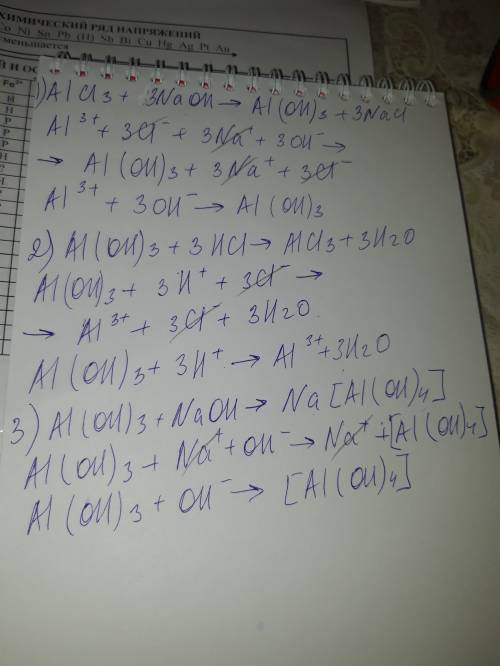 ХИМИЧЕСКИЙ РЯД НАПРЯЖЕНИЙ
Co Ni Sn Pb (H) Sb Bi Cu Hg Ag Pt Au
уменьшается
Й И
Fe²⁺
1) AlCl₃ + 3NaOH → Al(OH)₃ + 3NaCl
Al³⁺ + 3Cl⁻ + 3Na⁺ + 3OH⁻ →
→ Al(OH)₃ + 3Na⁺ + 3Cl⁻
Al³⁺ + 3OH⁻ → Al(OH)₃
2) Al(OH)₃ + 3HCl → AlCl₃ + 3H₂O
Al(OH)₃ + 3H⁺ + 3Cl⁻ →
→ Al³⁺ + 3Cl⁻ + 3H₂O.
Al(OH)₃ + 3H⁺ → Al³⁺ + 3H₂O
3) Al(OH)₃ + NaOH → Na[Al(OH)₄]
Al(OH)₃ + Na⁺ + OH⁻ → Na⁺ + [Al(OH)₄]
Al(OH)₃ + OH⁻ → [Al(OH)₄]